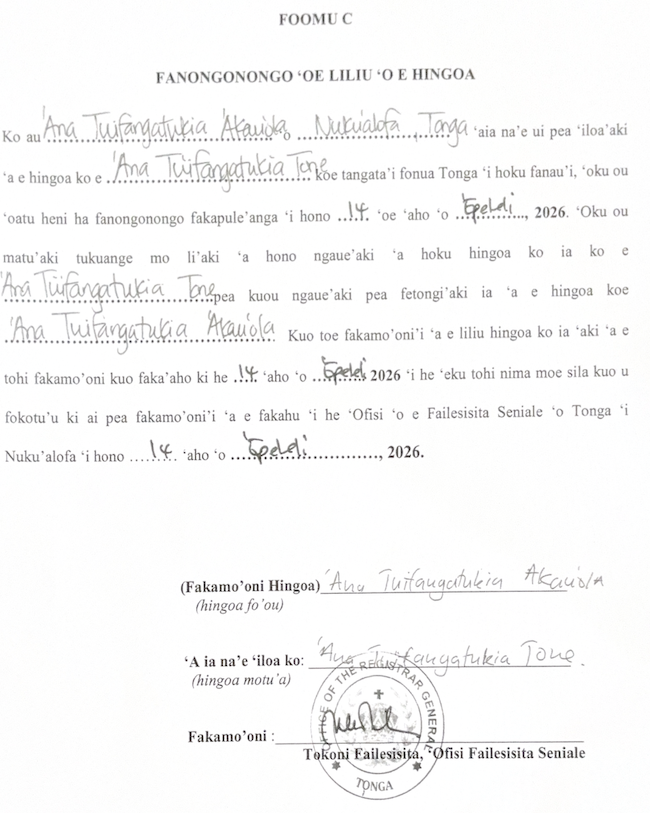 FOOMU C
FANONGONONGO ‘OE LILIU ‘O E HINGOA
Ko au 'Ana Tuifangatukia 'Akau'ola, Nuku'alofa, Tonga ‘aia na’e ui pea ‘iloa’aki
‘a e hingoa ko e 'Ana Tuifangatukia Tone koe tangata’i fonua Tonga ‘i hoku fanau’i, ‘oku ou
‘oatu heni ha fanongonongo fakapule’anga ‘i hono 14 ‘oe ‘aho ‘o 'Epeleli, 2026. ‘Oku ou
matu’aki tukuange mo li’aki ‘a hono ngaue’aki ‘a hoku hingoa ko ia ko e
'Ana Tuifangatukia Tone pea kuou ngaue’aki pea fetongi’aki ia ‘a e hingoa koe
'Ana Tuifangatukia 'Akau'ola. Kuo toe fakamo’oni’i ‘a e liliu hingoa ko ia ‘aki ‘a e
tohi fakamo’oni kuo faka’aho ki he 14 ‘aho ‘o 'Epeleli 2026 ‘i he ‘eku tohi nima moe sila kuo u
fokotu’u ki ai pea fakamo’oni’i ‘a e fakahu ‘i he ‘Ofisi ‘o e Failesisita Seniale ‘o Tonga ‘i
Nuku’alofa ‘i hono 14 ‘aho ‘o 'Epeleli, 2026.
(Fakamo’oni Hingoa) 'Ana Tuifangatukia Akau'ola
(hingoa fo’ou)
‘A ia na’e ‘iloa ko: 'Ana Tuifangatukia Tone.
(hingoa motu’a)
OFFICE OF THE REGISTRAR GENERAL
Fakamo’oni :
Tokoni Failesisita, ‘Ofisi Failesisita Seniale
TONGA